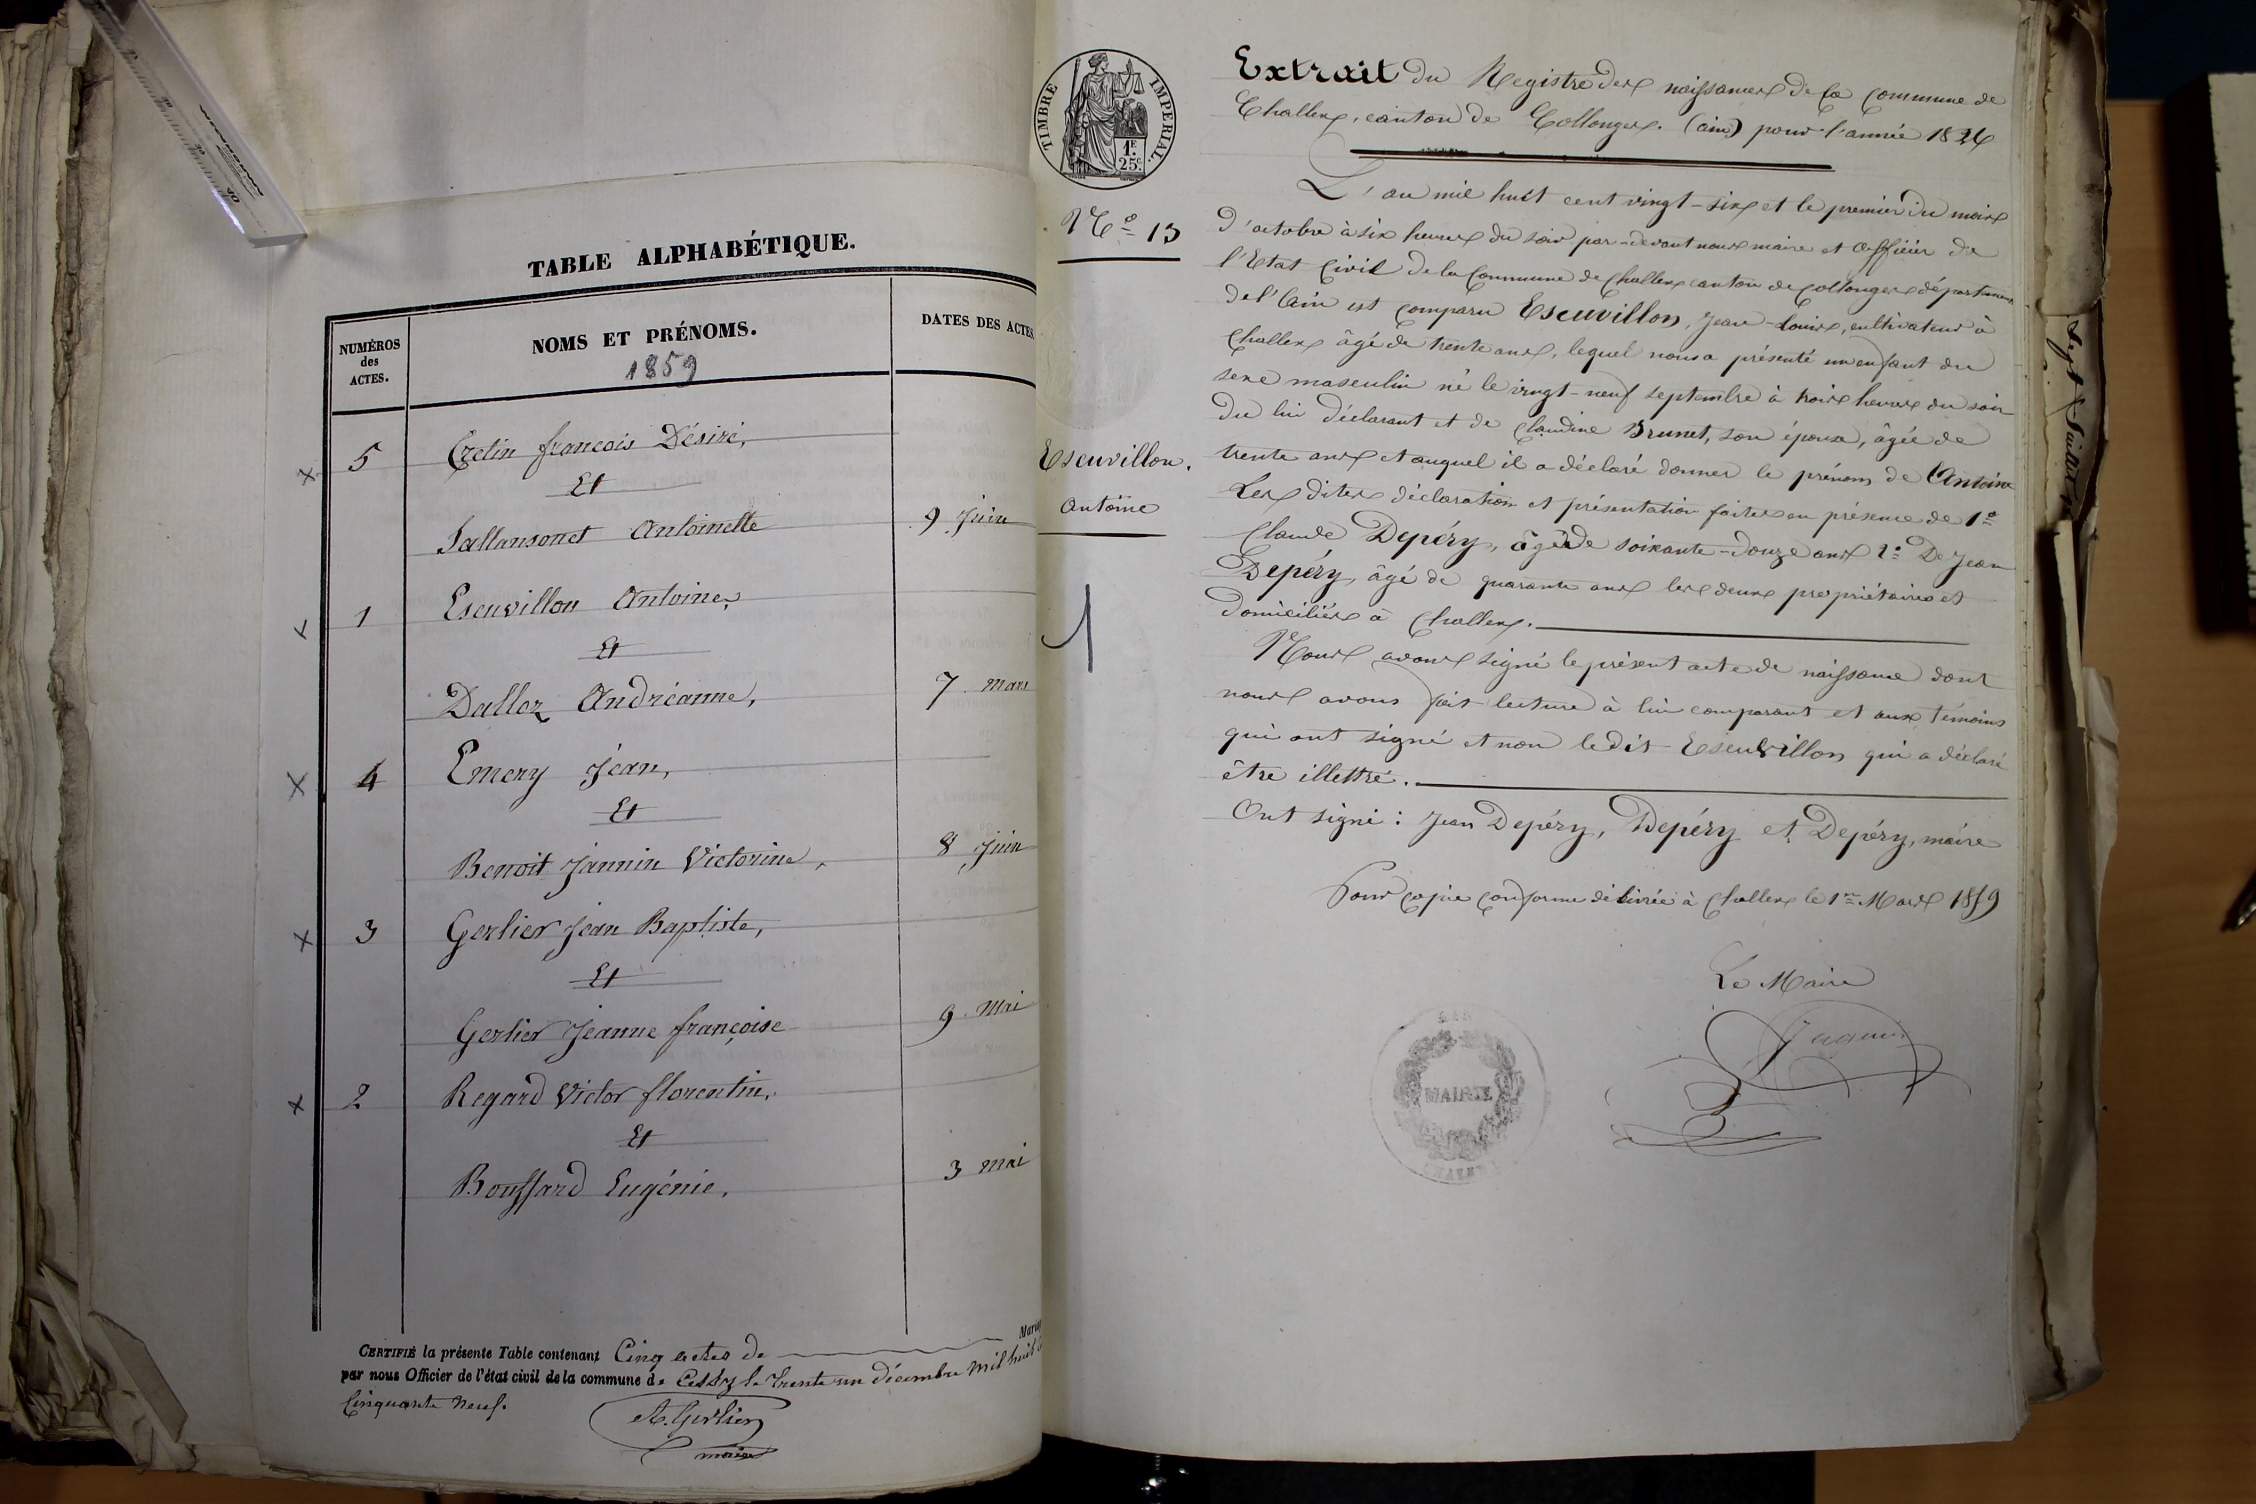 TABLE ALPHABÉTIQUE.
NUMÉROS
des
ACTES.
NOMS ET PRÉNOMS.
1859
DATES DES ACTES
5 Cretin françois Désiré,
Et
Sallansonet Antoinette 9 Juin
1 Escuvillon Antoine,
Et
Dalloz Andréanne, 7 mars
4 Emery Jean,
Et
Benoit Jannin Victorine, 8 Juin
3 Gerlier Jean Baptiste,
Et
Gerlier Jeanne françoise 9 Mai
2 Regard Victor florentin,
Et
Bouffard Eugénie, 3 mai
CERTIFIÉ la présente Table contenant Cinq actes de Mariag
par nous Officier de l'état civil de la commune de Cessy le trente un décembre mil huit c
Cinquante neuf.
A. Gerlier
maire
TIMBRE IMPERIAL.
1F.
25c.
Extrait du Registre des naissances de la Commune de
Challex, canton de Collonges. (ain) pour l'année 1826
N° 13
L'an mil huit cent vingt-six et le premier du mois
d'octobre à six heures du soir par-devant nous maire et officier de
l'Etat Civil de la Commune de Challex canton de Collonges département
de l'Ain est comparu Escuvillon, Jean-Louis, cultivateur à
Challex âgé de trente ans, lequel nous a présenté un enfant du
sexe masculin né le vingt-neuf septembre à trois heures du soir
Du lui déclarant et de Claudine Brunet, son épouse, âgée de
trente ans et auquel il a déclaré donner le prénom de Antoine
Les dites déclaration et présentation faites en présence de 1°
Claude Depéry, âgé de soixante-douze ans 2° De Jean
Depéry, âgé de quarante ans les deux propriétaires et
domiciliés à Challex.
Escuvillon.
Antoine
1
Nous avons signé le présent acte de naissance dont
nous avons fait lecture à lui comparant et aux témoins
qui ont signé et non ledit Escuvillon qui a déclaré
être illettré.
Ont signé : Jean Depéry, Depéry et Depéry, maire
Pour copie conforme délivrée à Challex le 1er Mars 1859
Le Maire
MAIRIE